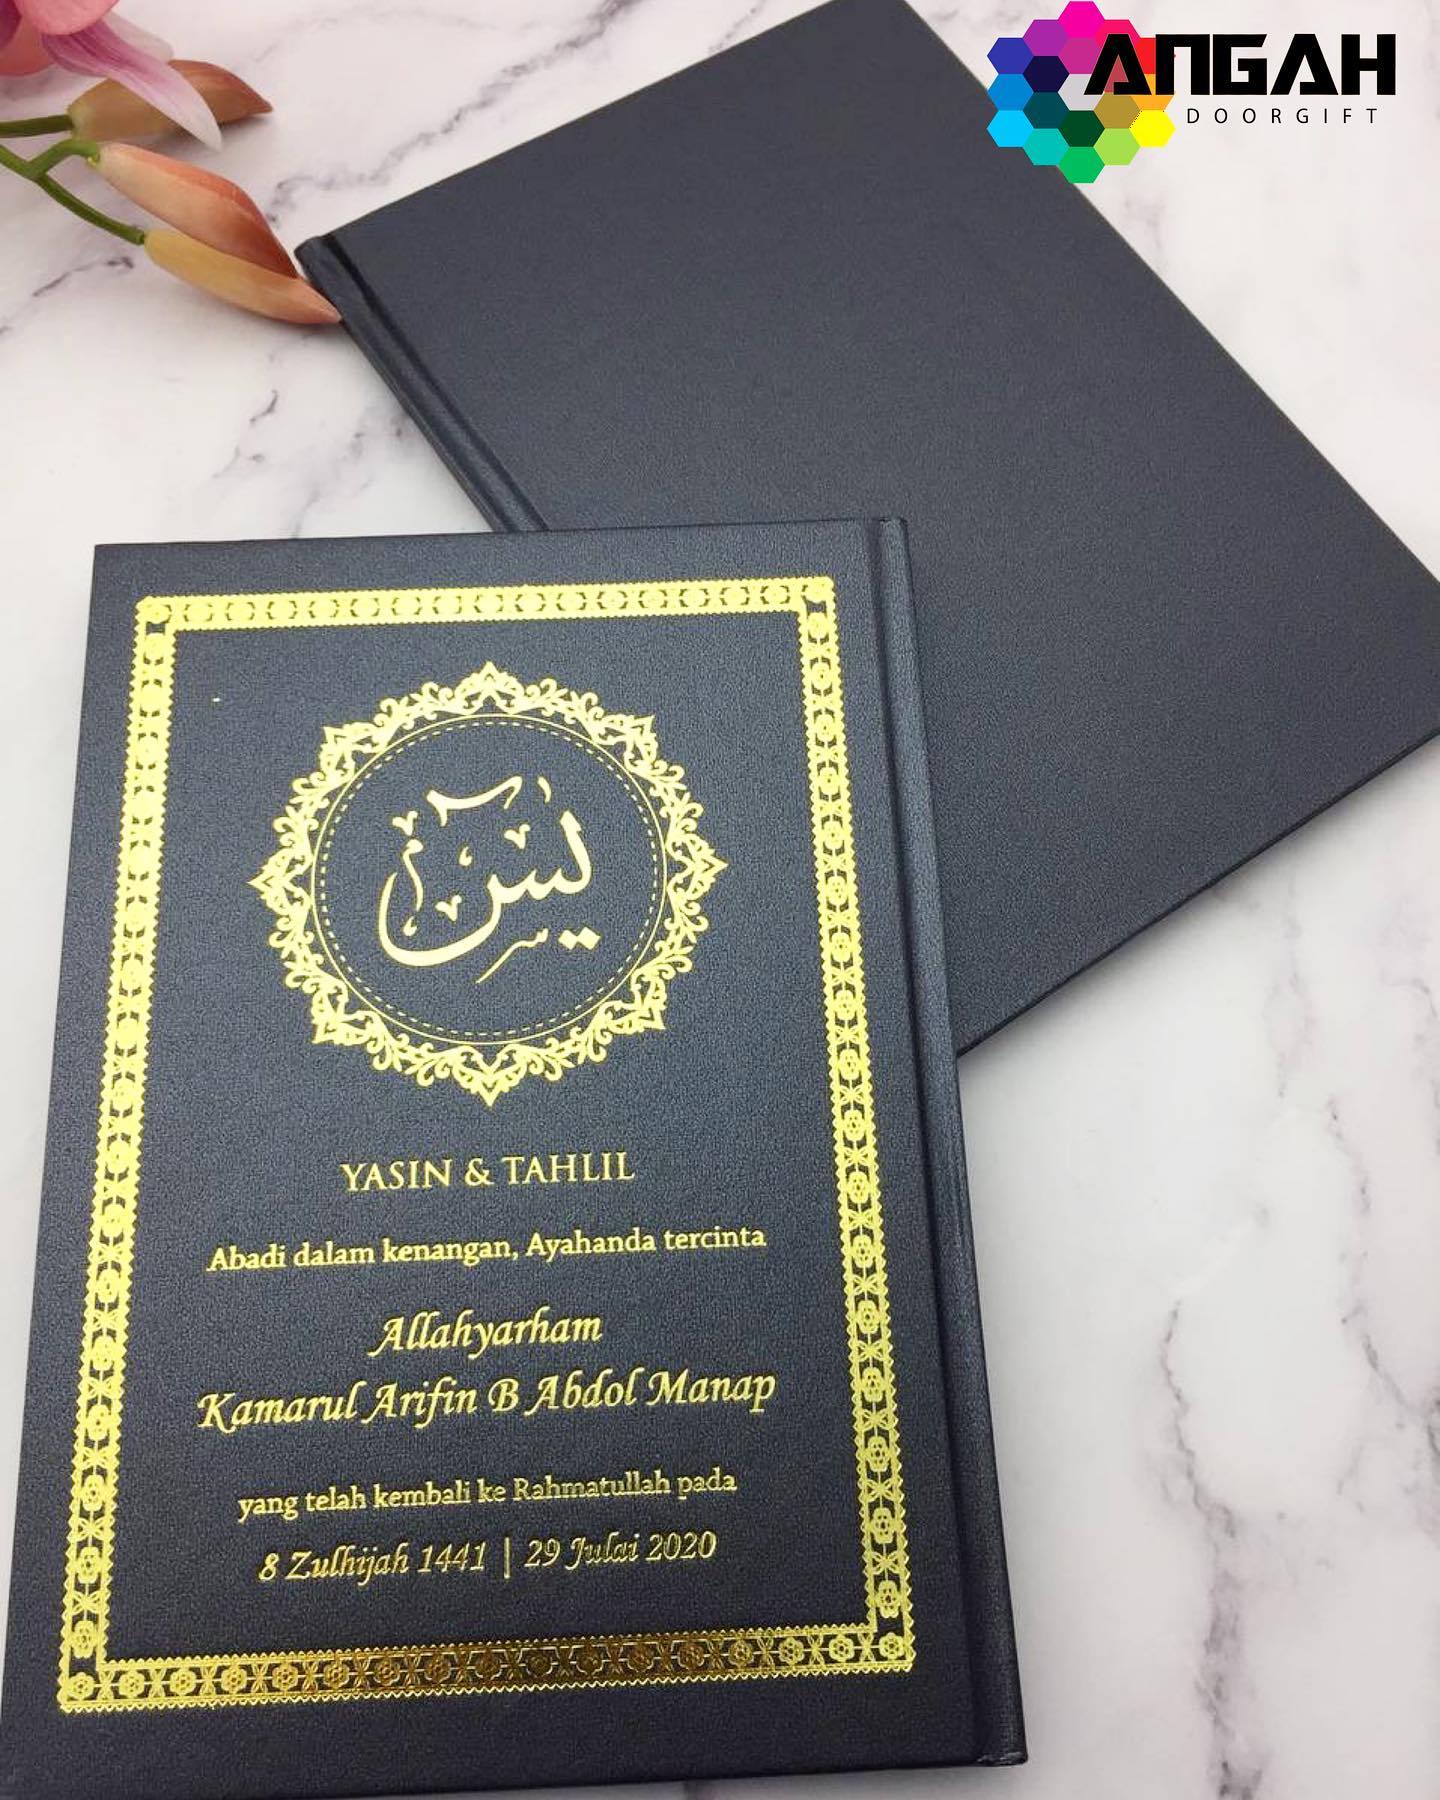 ANGAH
DOORGIFT
يس
YASIN & TAHLIL
Abadi dalam kenangan, Ayahanda tercinta
Allahyarham
Kamarul Arifin B Abdol Manap
yang telah kembali ke Rahmatullah pada
8 Zulhijah 1441 | 29 Julai 2020